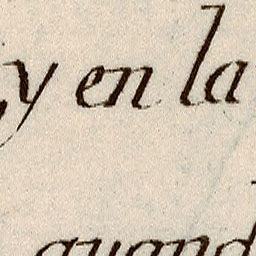 y en la
quand